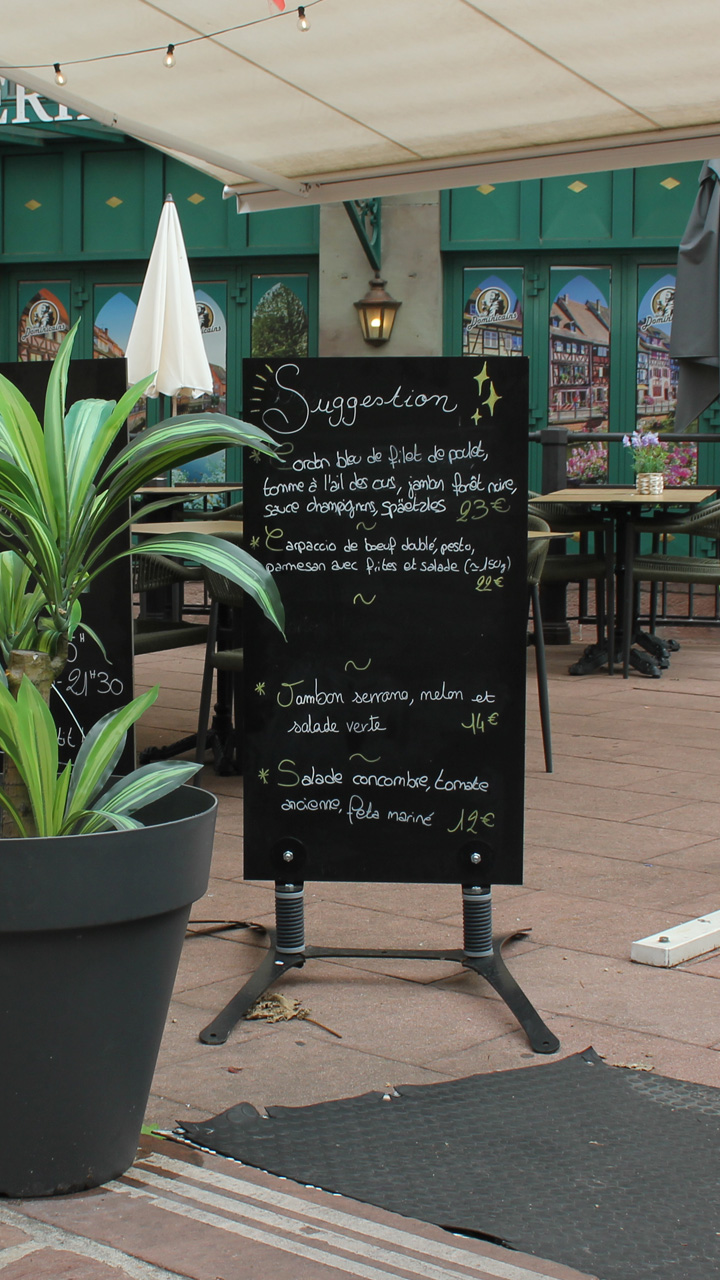 Suggestion
* Cordon bleu de filet de poulet,
tomme à l'ail des ours, jambon forêt noire,
sauce champignons, späetzles 23€
~
* Carpaccio de boeuf doublé, pesto,
parmesan avec frites et salade (~150g)
22€
~
~
* Jambon serrano, melon et
salade verte 14€
~
* Salade concombre, tomate
ancienne, feta mariné 12€
-21H30
Dominicains
Dominicains
Dominicains
Dominicains